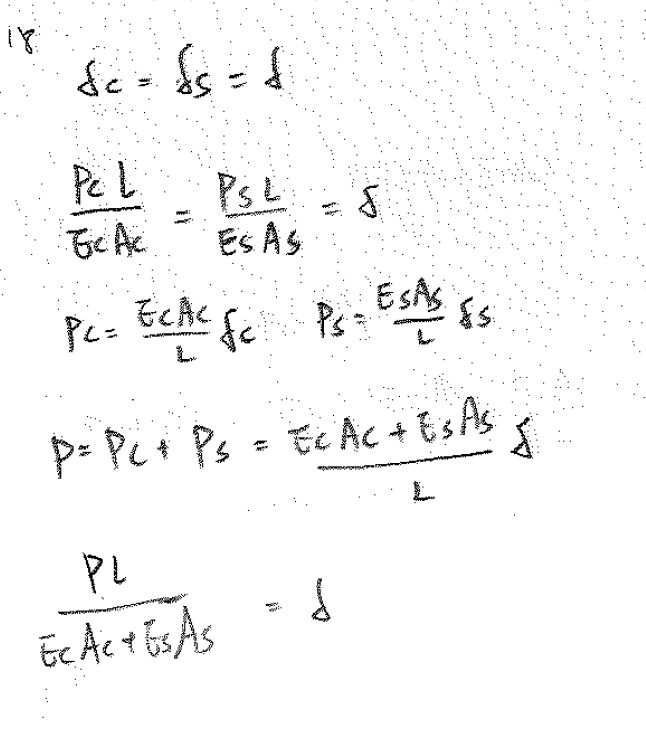 18
δc = δs = δ
PcL/EcAc = PsL/EsAs = δ
Pc = EcAc/L δc Ps = EsAs/L δs
P = Pc + Ps = (EcAc + EsAs)/L δ
PL/(EcAc + EsAs) = δ